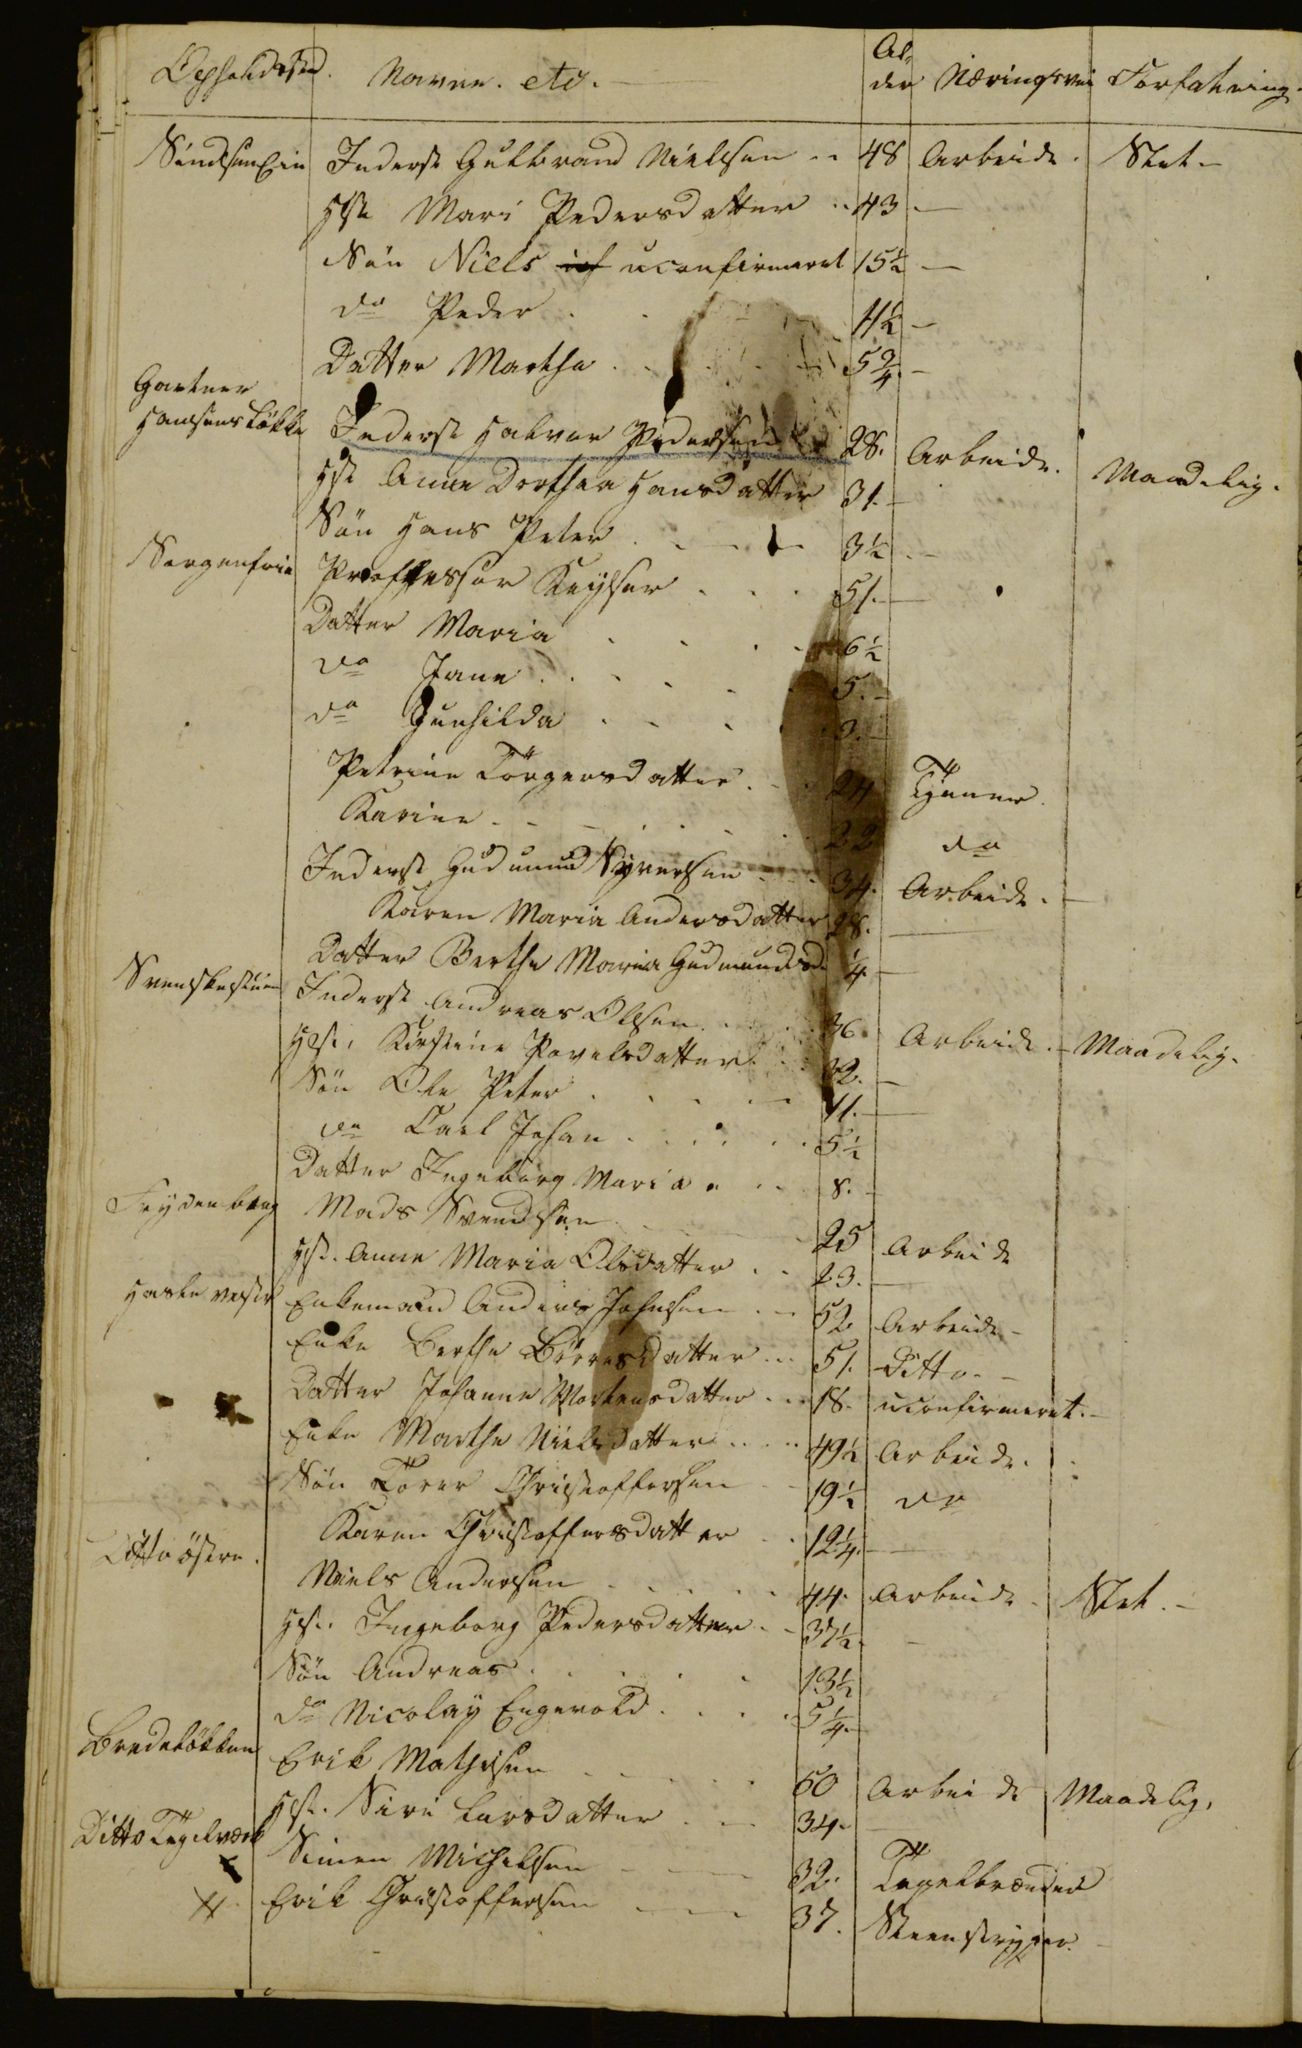 Opholdssted. Navne. etc. Alder Næringsvei Forfatning.
Inderst Gulbrand Nielsen 48 Arbeide. Slet
Hst Mari Pedersdatter 43
Søn Niels uconfirmeret 15½
do Peder 11½
Datter Marthe 5¾
Gartner
Hansens Løkke Inderst Halvor Pedersen 28. Arbeide. Maadelig.
Hst Anne Dorthea Hansdatter 31
Søn Hans Peter 3½
Sorgenfrie Proffessor Keyser 51
Datter Maria 6½
do Jane 5
do Gunhilda 3
Petrine Törgersdatter 24 Tjener
Karine 22 do
Inderst Gudmund Syversen 34. Arbeide.
Karen Maria Andersdatter 28.
Datter Berthe Maria Gudmundsd. ¼
Svenskestuen Inderst Andreas Olsen 36 Arbeide. Maadelig.
Hst. Kirstine Povelsdatter 32.
Søn Ole Peter 11.
do Carl Johan 5½
Datter Ingeborg Maria 8.
Frydenberg Mads Svendsen 25 Arbeide
Hst. Anne Maria Olsdatter 23.
Hasle vestre Enkemand Anders Johnsen 52 Arbeide
Enke Berthe Börresdatter 51. Ditto
Datter Johanne Mortensdatter 18. uconfirmeret.
Enke Marthe Nielsdatter 49½ Arbeide.
Søn Torer Christoffersen 19½ do
Karen Christoffersdatter 12¼
Ditto östre. Niels Andersen 44. Arbeide Slet.
Hst. Ingeborg Pedersdatter 37½
Søn Andreas 13½
do Nicolay Engerold 5¼
Bredeløkken Erik Mathisen 50 Arbeide Maadelig.
Hst. Siri Larsdatter 34.
Ditto Teglværk Simen Michelsen 32. Tegelbrænder
Erik Christoffersen 37. Steenstryger.